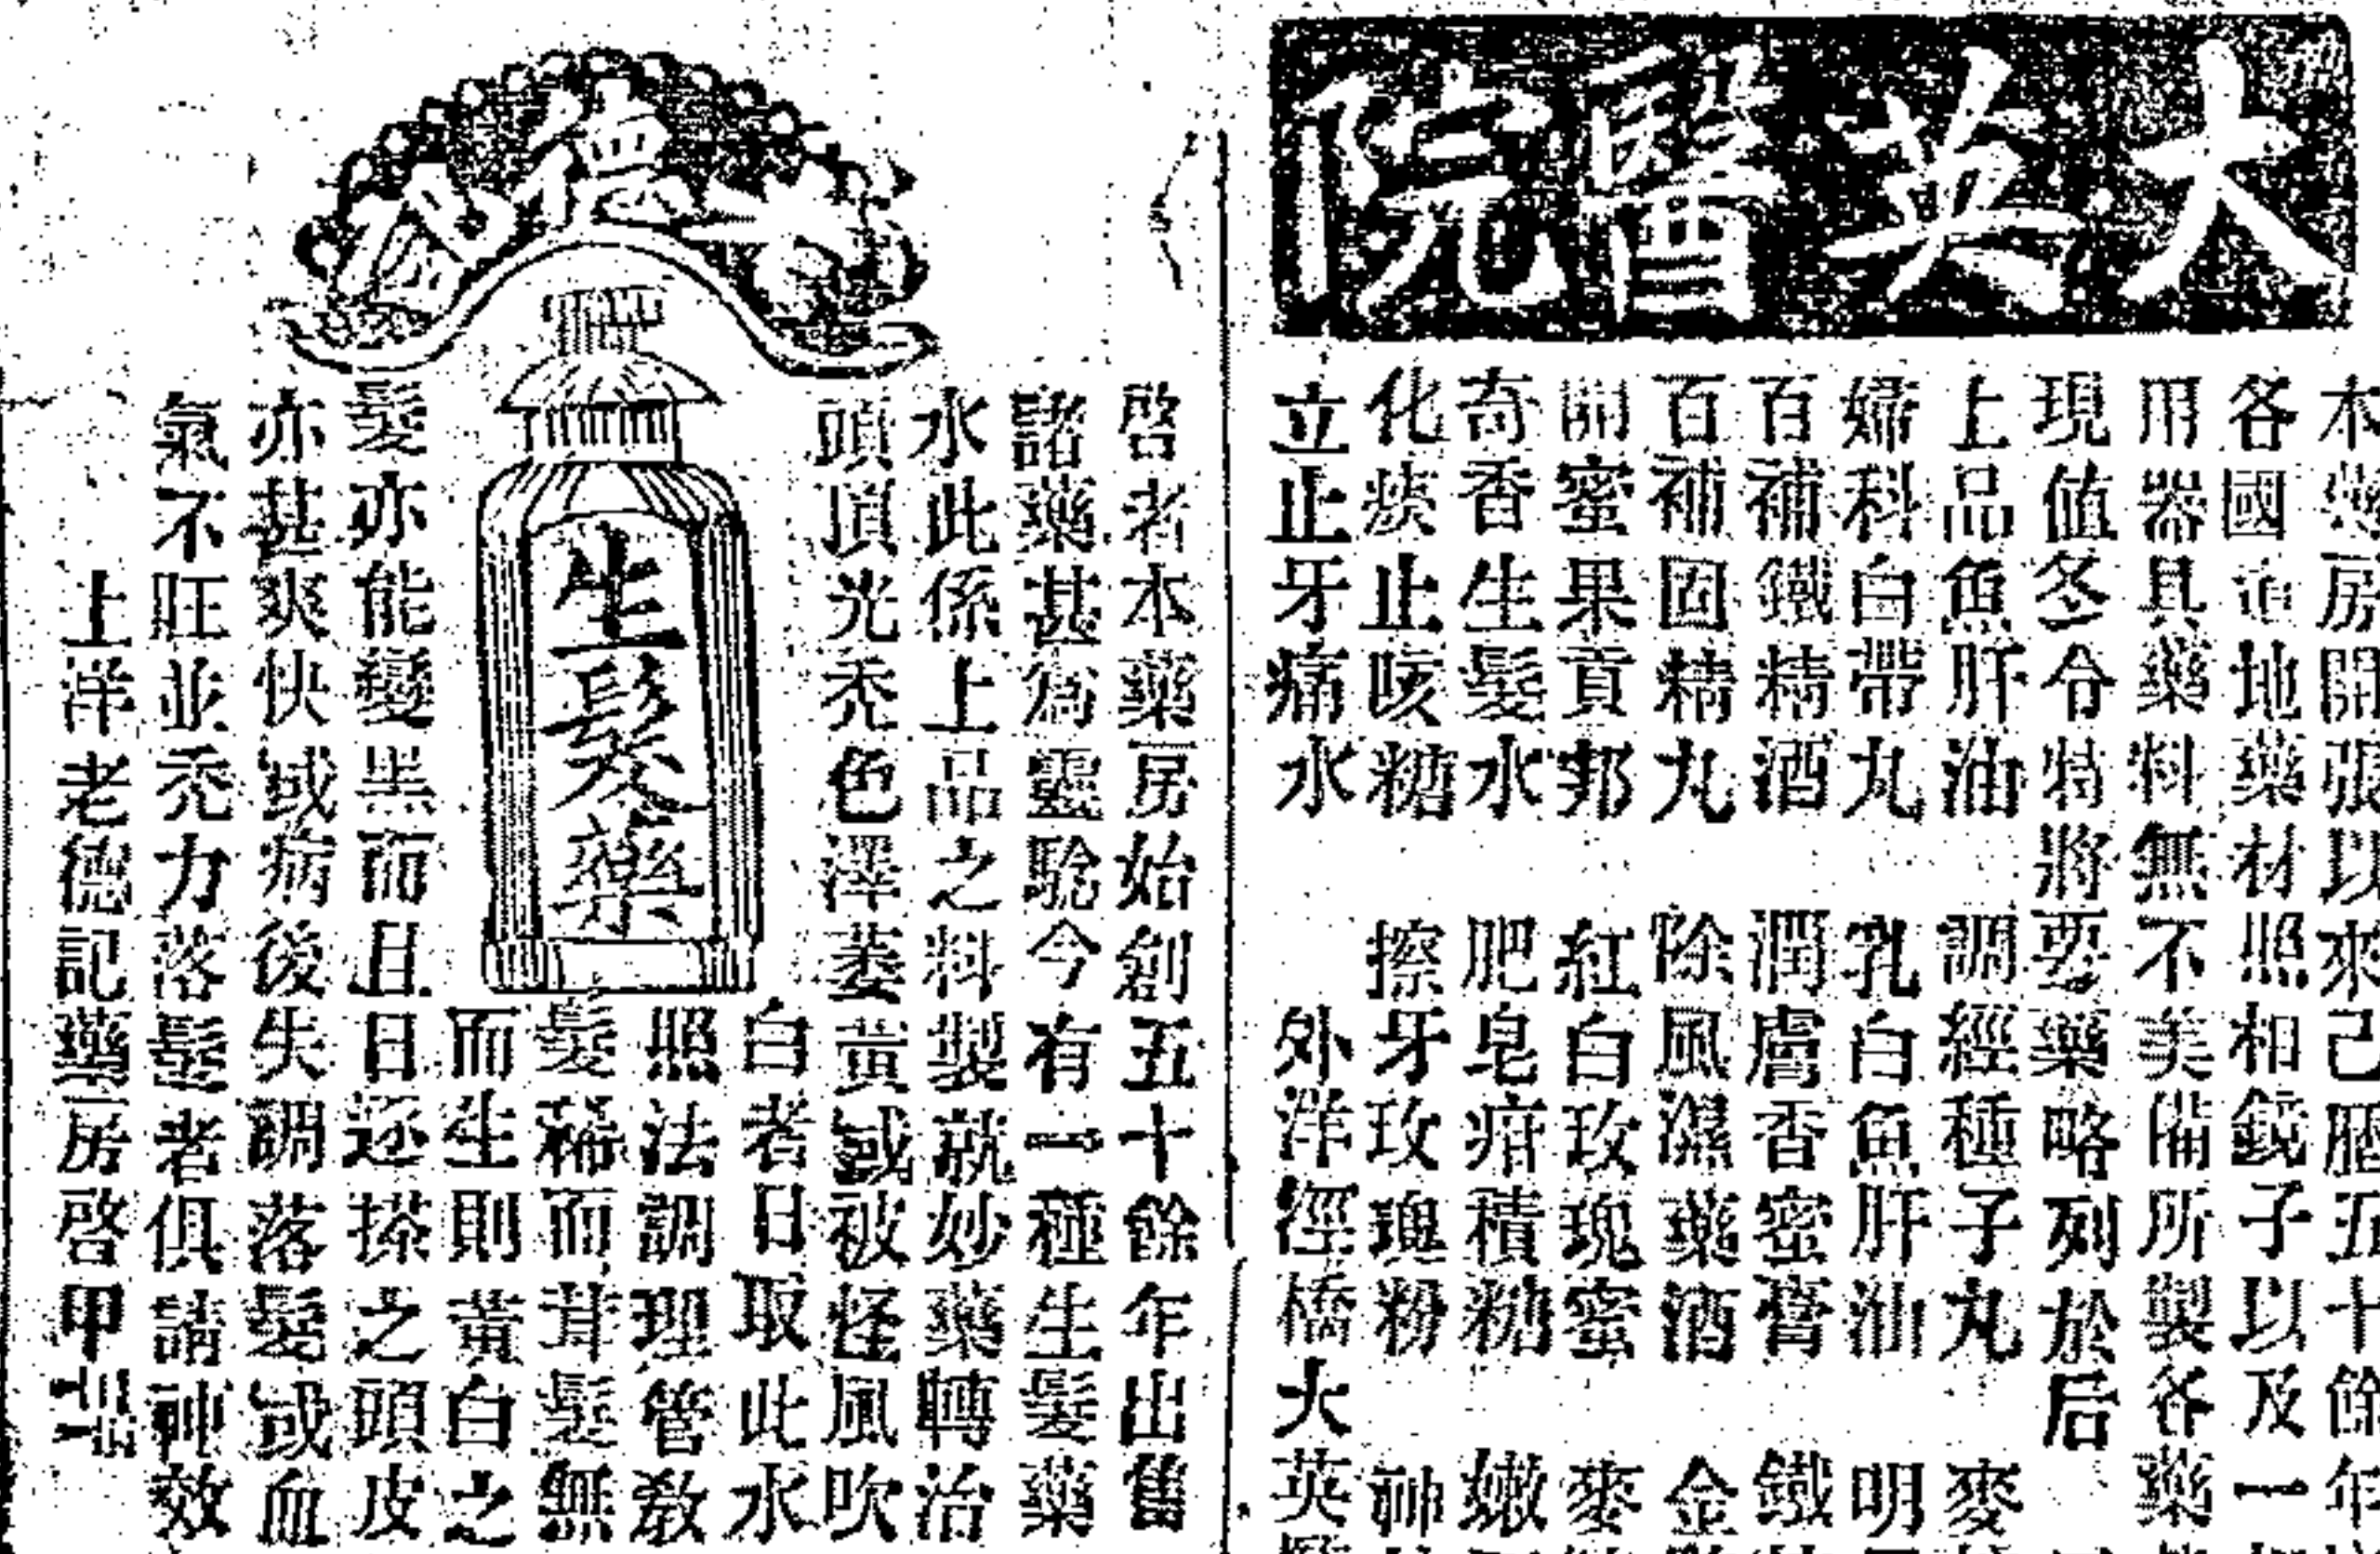 大英醫院
本藥房開張以來已歷五十餘年
各國道地藥材照相鏡子以及一
用器具藥料無不美備所製各藥
現値冬令特將要藥略列於后
上品魚肝油　調經種子丸　麥
婦科白帶丸　乳白魚肝油　明
百補鐵精酒　潤膚香蜜膏　鐵
百補固精丸　除風濕藥酒　金
開蜜果貢邦　紅白玫瑰蜜　麥
奇香生髮水　肥皂疳積糖　嫩
化痰止咳糖　擦牙玫瑰粉　神
立止牙痛水　外洋涇橋大英醫
老德記
生髮藥
啓者本藥房始創五十餘年出售
諸藥甚爲靈驗今有一種生髮藥
水此係上品之料製就妙藥轉治
頭頂光禿色澤萎黃或被怪風吹
白者日取此水
照法調理管教
髮稀而茸髮無
而生則黃白之
髮亦能變黑而且日逐搽之頭皮
亦甚爽快或病後失調落髮或血
氣不旺並禿力落髮者俱請神效
上洋老德記藥房啓甲